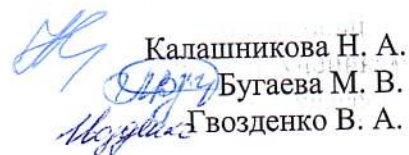 Калашникова Н. А.
Бугаева М. В.
Гвозденко В. А.